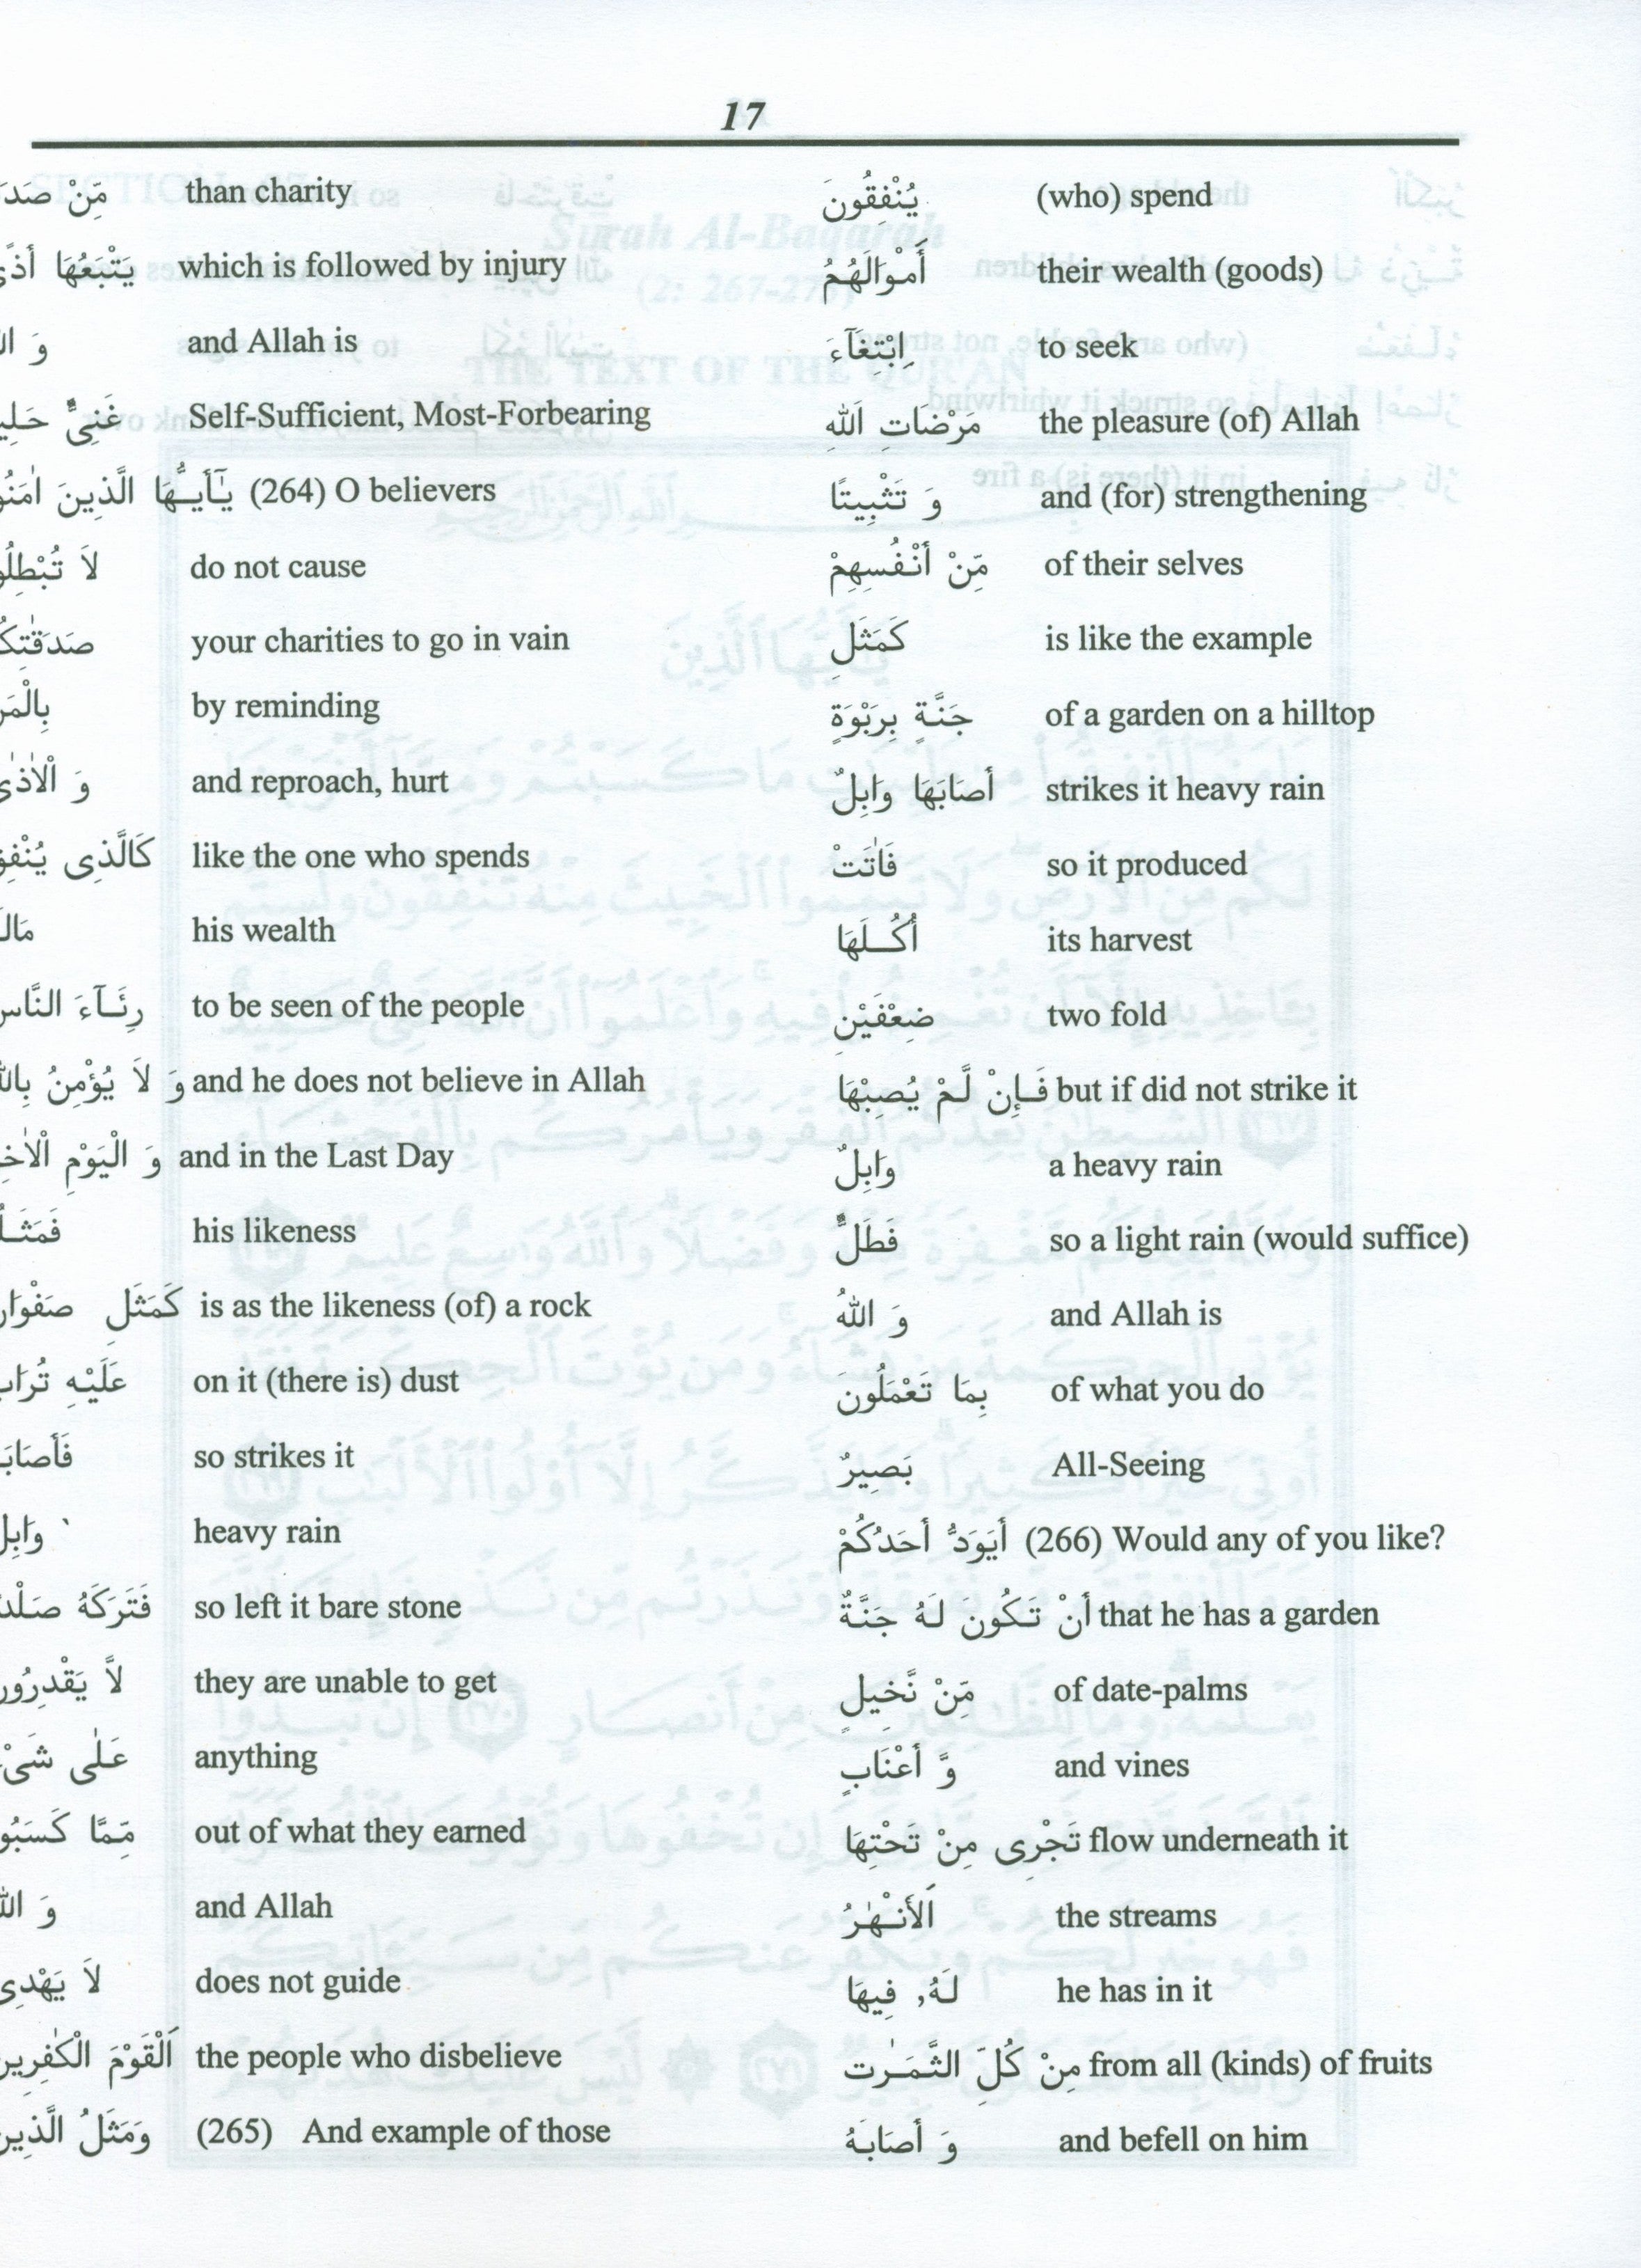 17
مِّنْ than charity
يَتْبَعُهَا which is followed by injury
وَ and Allah is
غَنِىٌّ Self-Sufficient, Most-Forbearing
يٰٓأَيُّهَا الَّذِينَ (264) O believers
لاَ do not cause
your charities to go in vain
by reminding
وَ and reproach, hurt
كَالَّذِى like the one who spends
his wealth
رِئَـآءَ to be seen of the people
وَ لاَ يُؤْمِنُ and he does not believe in Allah
وَ الْيَوْمِ and in the Last Day
his likeness
كَمَثَلِ is as the likeness (of) a rock
عَلَيْهِ on it (there is) dust
so strikes it
heavy rain
فَتَرَكَهُ so left it bare stone
لاَّ they are unable to get
عَلٰى anything
مِّمَّا out of what they earned
وَ and Allah
لاَ does not guide
اَلْقَوْمَ the people who disbelieve
وَمَثَلُ (265) And example of those
يُنْفِقُونَ (who) spend
أَمْوَالَهُمُ their wealth (goods)
اِبْتِغَآءَ to seek
مَرْضَاتِ اَللهِ the pleasure (of) Allah
وَ تَثْبِيتًا and (for) strengthening
مِّنْ أَنْفُسِهِمْ of their selves
كَمَثَلِ is like the example
جَنَّةٍ بِرَبْوَةٍ of a garden on a hilltop
أَصَابَهَا وَابِلٌ strikes it heavy rain
فَاٰتَتْ so it produced
أُكُـلَهَا its harvest
ضِعْفَيْنِ two fold
فَـإِنْ لَّمْ يُصِبْهَا but if did not strike it
وَابِلٌ a heavy rain
فَطَلٌّ so a light rain (would suffice)
وَ اللهُ and Allah is
بِمَا تَعْمَلُونَ of what you do
بَصِيرٌ All-Seeing
أَيَوَدُّ أَحَدُكُمْ (266) Would any of you like?
أَنْ تَكُونَ لَهُ جَنَّةٌ that he has a garden
مِّنْ نَّخِيلٍ of date-palms
وَّ أَعْنَابٍ and vines
تَجْرِى مِنْ تَحْتِهَا flow underneath it
اَلأَنْـهٰرُ the streams
لَهُ, فِيهَا he has in it
مِنْ كُلِّ الثَّمَـرٰت from all (kinds) of fruits
وَ أَصَابَهُ and befell on him